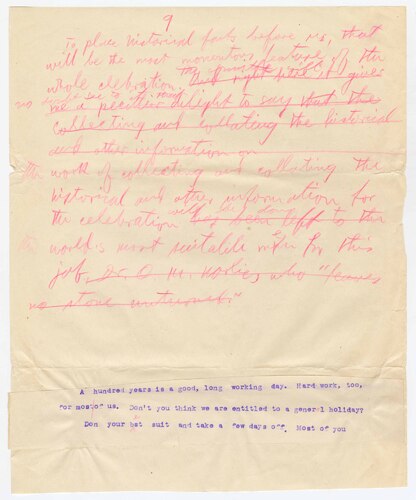 9
To place historical facts before us, that
will be the most momentous feature of the
whole celebration. But right here, it gives
me a peculiar delight to say that the
collecting and collating the historical
and other information on
the work of collecting and collating the
historical and other information for
the celebration has been left to the
the world's most suitable man for this
job, Dr. O. M. who "leaves
no stone unturned."
A hundred years is a good, long working day. Hard work, too,
for mostof us. Don't you think we are entitled to a general holiday?
Don your best suit and take a few days off. Most of you